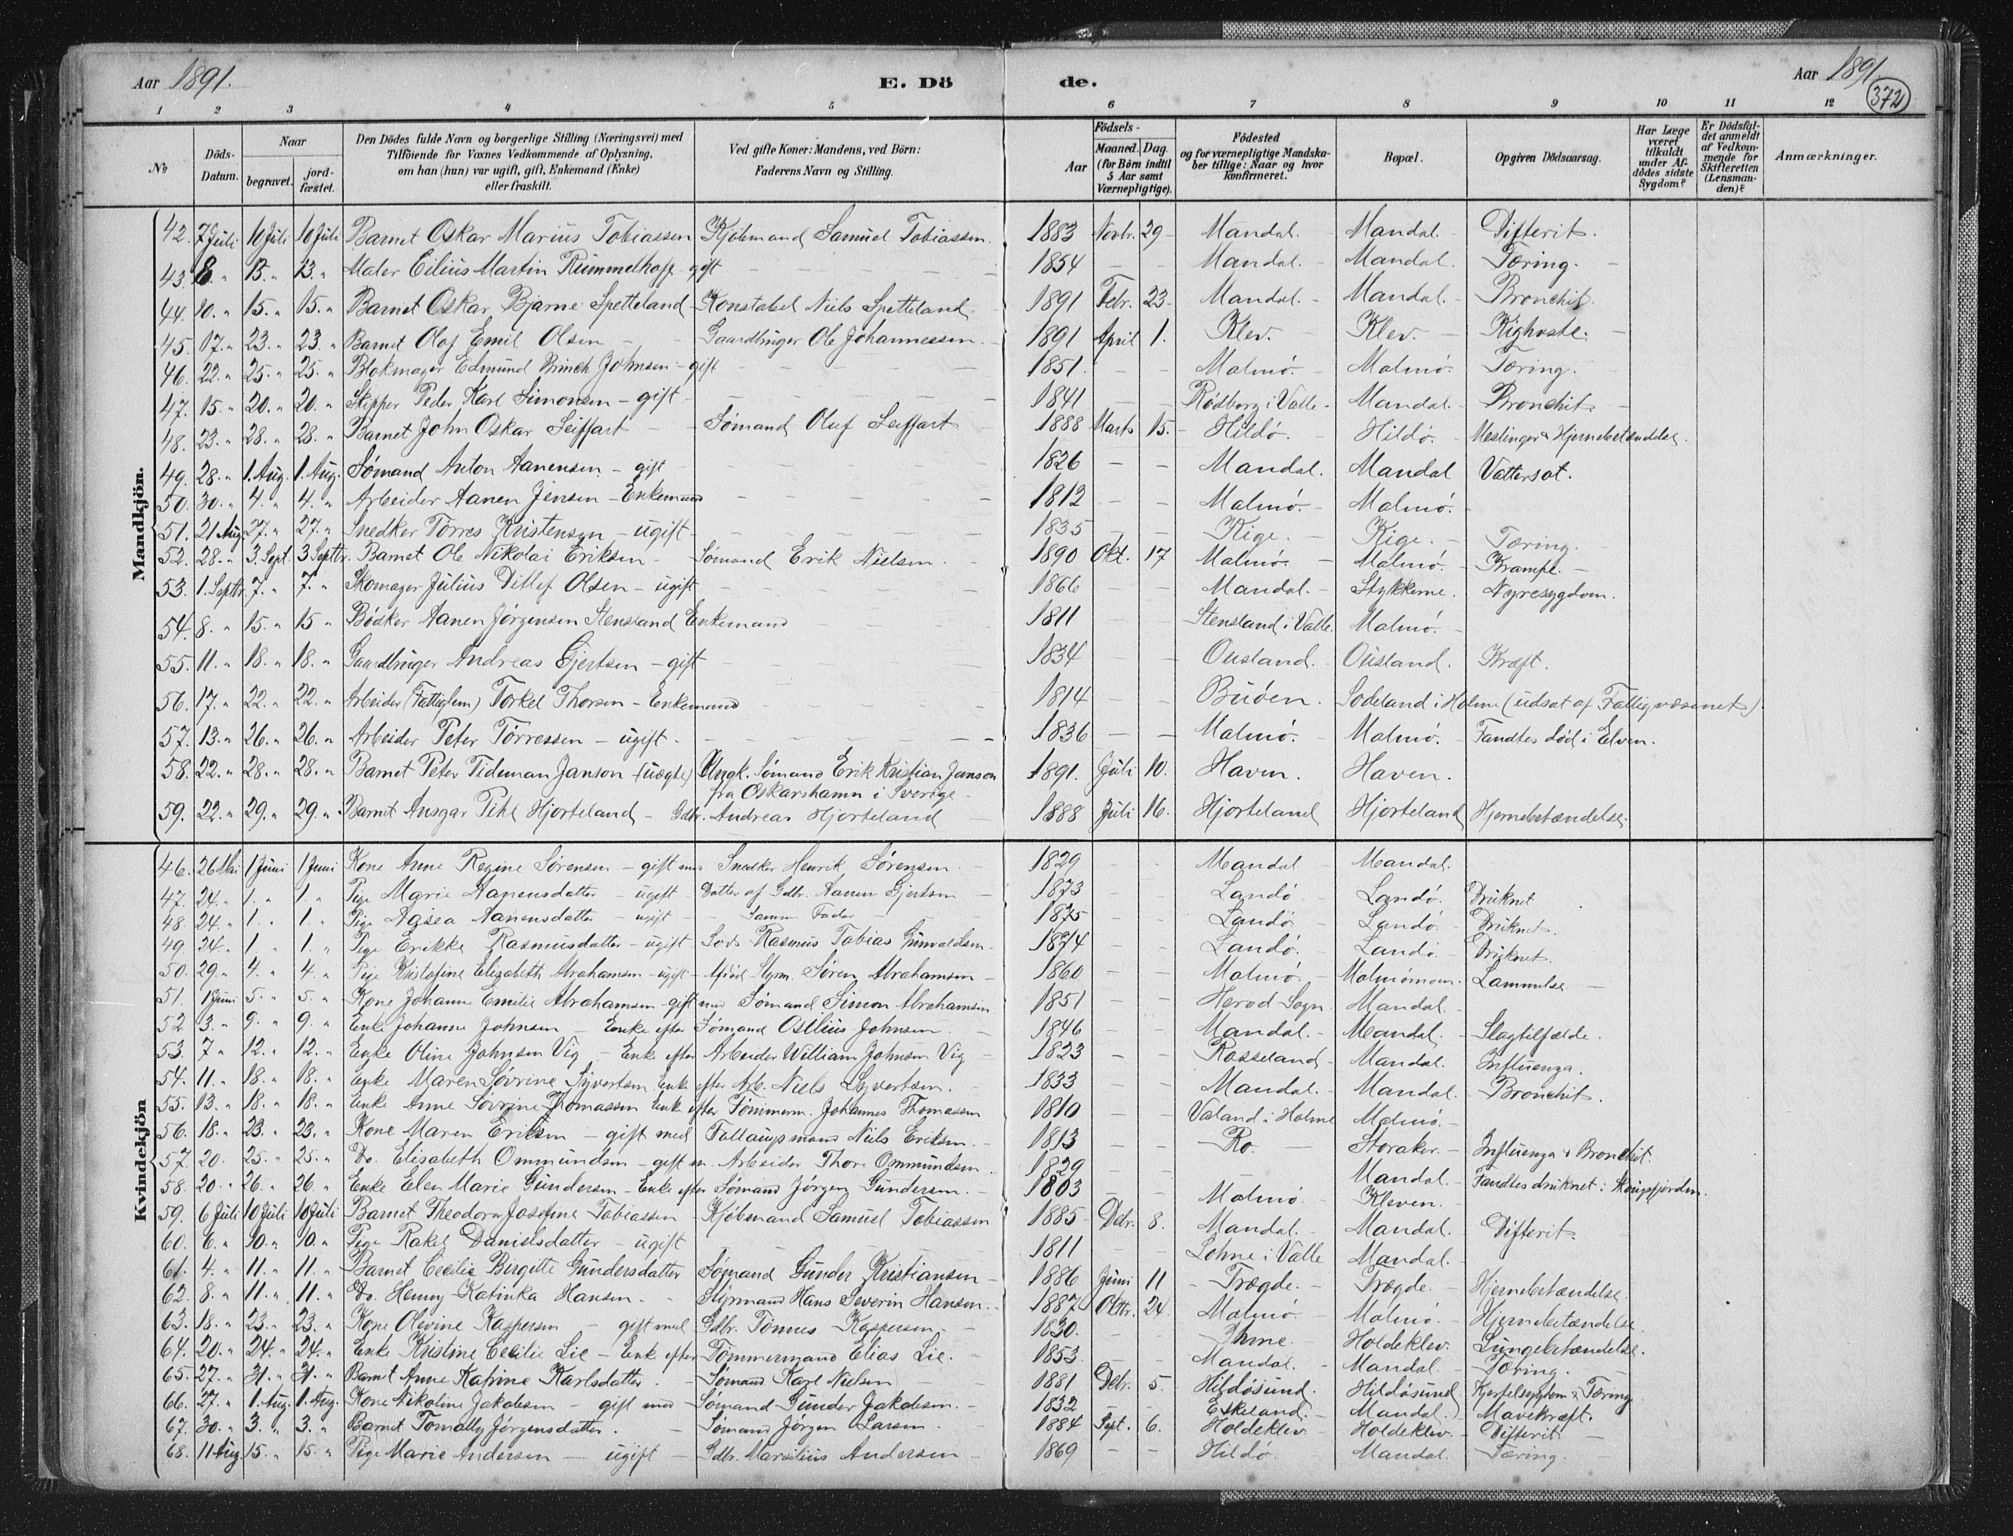 Aar 1891. E. Dö de. Aar 1891
372
1 2 3 4 5 6 7 8 9 10 11 12
No
Döds-Datum.
Naar
begravet.
jord-fæstet.
Den Dödes fulde Navn og borgerlige Stilling (Næringsvei) med
Tilföiende for Voxnes Vedkommende af Oplysning,
om han (hun) var ugift, gift, Enkemand (Enke)
eller fraskilt.
Ved gifte Koner: Mandens, ved Börn:
Faderens Navn og Stilling.
Födsels-
Aar
Maaned. Dag.
(for Börn indtil
5 Aar samt
Værnepligtige).
Födested
og for værnepligtige Mandska-
ber tillige: Naar og hvor
konfirmeret.
Bopæl.
Opgiven Dödsaarsag.
Har Læge
været
tilkaldt
under Af-
dödes sidste
Sygdom?
Er Dödsfal-
det anmeldt
af Vedkom-
mende for
Skifteretten
(Lensman-
den)?
Anmærkninger.
Mandkjön.
42. 7 Juli 10 Juli 10 Juli Barnet Oskar Marius Tobiassen Kjöbmand Samuel Tobiassen. 1883 Novbr. 29 Mandal. Mandal. Difterit.
43. 8. " 13. " 13. " Maler Eilius Martin Rummelhoff gift 1854 Mandal. Mandal. Tæring.
44. 10. " 15. " 15. " Barnet Oskar Bjarne Spetteland Konstabel Niels Spetteland. 1891 Febr. 23. Mandal. Mandal. Bronchit.
45. 17. " 23. " 23. " Barnet Olaf Emil Olsen Gaardbruger Ole Johannessen 1891 April 1. Klev. Klev. Kighoste.
46. 22. " 25. " 25. " Blokmager Edmund Brinch Johnsen - gift 1851. Malmö. Malmö. Tæring.
47. 15. " 20. " 20. " Skipper Peder Karl Simonsen - gift 1841 Rödberg i Valle Mandal. Bronchit
48. 23. " 28. " 28. " Barnet John Oskar Seiffart Sømand Oluf Seiffart 1888 Marts 15. Hildö. Hildö. Meslinger & Hjernebetændelse.
49. 28. " 1. Aug. 1. Aug. Sømand Anton Aanensen - gift 1826 Mandal. Mandal Vattersot.
50. 30. " 4. " 4. " Arbeider Aanen Jensen - Enkemand 1812 Malmö. Malmö.
51. 21 Aug. 27. " 27. " Snedker Torres Kristensen - ugift 1835 Kige. Kige. Tæring.
52. 28. " 3. Sept. 3 Septbr. Barnet Ole Nikolai Eriksen Sømand Erik Nielsen. 1890 Okt. 17 Malmö. Malmö. Krampe.
53. 1. Septbr. 7. " 7. " Skomager Julius Ditlef Olsen - ugift 1866 Mandal. Stykkerne. Nyresygdom.
54. 8. " 15. " 15 " Bødker Aanen Jørgensen Stensland Enkemand 1811 Stensland i Valle. Malmö.
55. 11. " 18. " 18. " Gaardbruger Andreas Gjertsen - gift 1834 Ousland. Ousland. Kræft.
56. 17. " 22. " 22. " Arbeider (Fattiglem) Torkel Thorsen - Enkemand 1814 Buöen. Sodeland i Holme (udsat af Fattigvæsenet).
57. 13. " 26. " 26. " Arbeider Peter Tørressen - ugift. 1836 Malmö. Malmö. Fandtes död i Elven.
58. 22. " 28. " 28. " Barnet Peter Tideman Janson (uægte) Ungk. Sømand Erik Kristian Janson 1891. Juli 10. Haven. Haven.
fra Oskarshamn i Sverige.
59. 22. " 29. " 29. " Barnet Ansgar Pihl Hjorteland - Gdbr. Andreas Hjorteland 1888 Juli 16. Hjorteland Hjorteland Hjernebetændelse
Kvindekjön
46. 26 Mai 1 Juni 1 Juni Kone Anne Regine Sørensen - gift med Snedker Henrik Sørensen 1829 Mandal Mandal.
47. 24. " 1. " 1. " Pige Marie Aanensdatter - ugift Datter af Gdbr. Aanen Gjertsen 1873 Landö Landö. Druknet
48. 24. " 1. " 1. " Pige Agsea Aanensdatter - ugift Samme Fader 1875 Landö. Landö. Druknet.
49 24. " 1 " 1. " Pige Erikke Rasmusdatter - ugift Rasmus Tobias Gunvaldsen 1874 Landö. Landö. Druknet.
50. 29. " 4. " 4. " Pige Kristofine Elizabeth Abrahamsen - ugift Styrm. Søren Abrahamsen 1860 Malmö. Malmömoen. Lammelse
51. 1 Juni 5. " 5. " Kone Johanne Emilie Abrahamsen - gift med Sømand Simon Abrahamsen 1851 Herod Sogn. Mandal.
52 3. " 9. " 9. " Enke Johanne Johnsen - Enke efter Sømand Ostlius Johnsen. 1846 Mandal. Mandal. Slagtilfælde.
53. 7 " 12. " 12. " Enke Oline Johnsen Vig - Enke efter Arbeider William Johnsen Vig 1823 Rosseland Mandal. Influenza.
54. 11. " 18. " 18. " Enke Maren Sovrine Syvertsen Enke efter Arb. Niels Syvertsen. 1833 Mandal. Mandal. Bronchit.
55. 13. " 18. " 18. " Enke Anne Sovrine Thomassen Enke efter Tömmerm. Johannes Thomassen 1810 Valand i Holme Malmö.
56. 18. " 23. " 23. " Kone Maren Eriksen - gift med Niels Eriksen. 1813 Ro. Storaker. Influenza & Bronchit.
57. 20. 25. " 25. " Do. Elisabeth Ommundsen - gift m. Arbeider Thore Ommundsen. 1829 Mandal.
58. 20. " 26. " 26 " Enke Elen Marie Gundersen - Enke efter Sømand Jørgen Gundersen. 1803 Malmö Kleven. Fandtes druknet i Skogsfjorden.
59. 6 Juli 10 Juli 10 Juli Barnet Theodora Josefine Tobiassen Kjöbmand Samuel Tobiassen 1885 Debr. 8. Mandal. Mandal. Difterit.
60. 6. " 10. " 10. " Pige Rakel Danielsdatter - ugift 1811 Lohne i Valle Mandal.
61. 4. " 11. " 11. " Barnet Cecilie Birgitte Gundersdatter Sømand Gunder Kristiansen 1886 Juni 11 Trægde. Trægde. Hjernebetændelse.
62. 8. " 11. " 11. " Do. Henny Katinka Hansen. Styrmand Hans Severin Hansen. 1887 Oktbr. 24 Malmö. Malmö. Hjernebetændelse
63. 18. " 23. " 23. " Kone Olevine Kaspersen - gift med Gdbr. Tönnes Kaspersen. 1830. Ihme. Holdeklev. Lungebetændelse.
64. 20. " 24. " 24. " Enke Kristine Cecilie Lie - Enke efter Tömmermand Elias Lie. 1853 Mandal. Mandal. Tæring.
65. 27. " 31. " 31. " Barnet Anne Katrine Karlsdatter. Sømand Karl Nielsen 1881 Debr. 5. Hildösund. Hildösund. Kjertelsygdom & Tæring
66. 27. " 1. Aug. 1. Aug. Kone Nikoline Jakobsen - gift med Sømand Gunder Jakobsen. 1832 Eskeland. Mandal. Mavekræft.
67. 30. " 3. " 3. " Barnet Tomally Jørgensdatter. Sømand Jørgen Larsen 1884 Sept. 6. Holdeklev Holdeklev. Difterit
68. 11 Aug. 15. " 15. " Pige Marie Andersen - ugift Gdbr. Marsilius Andersen 1869 Hildö. Mandal. Tæring.